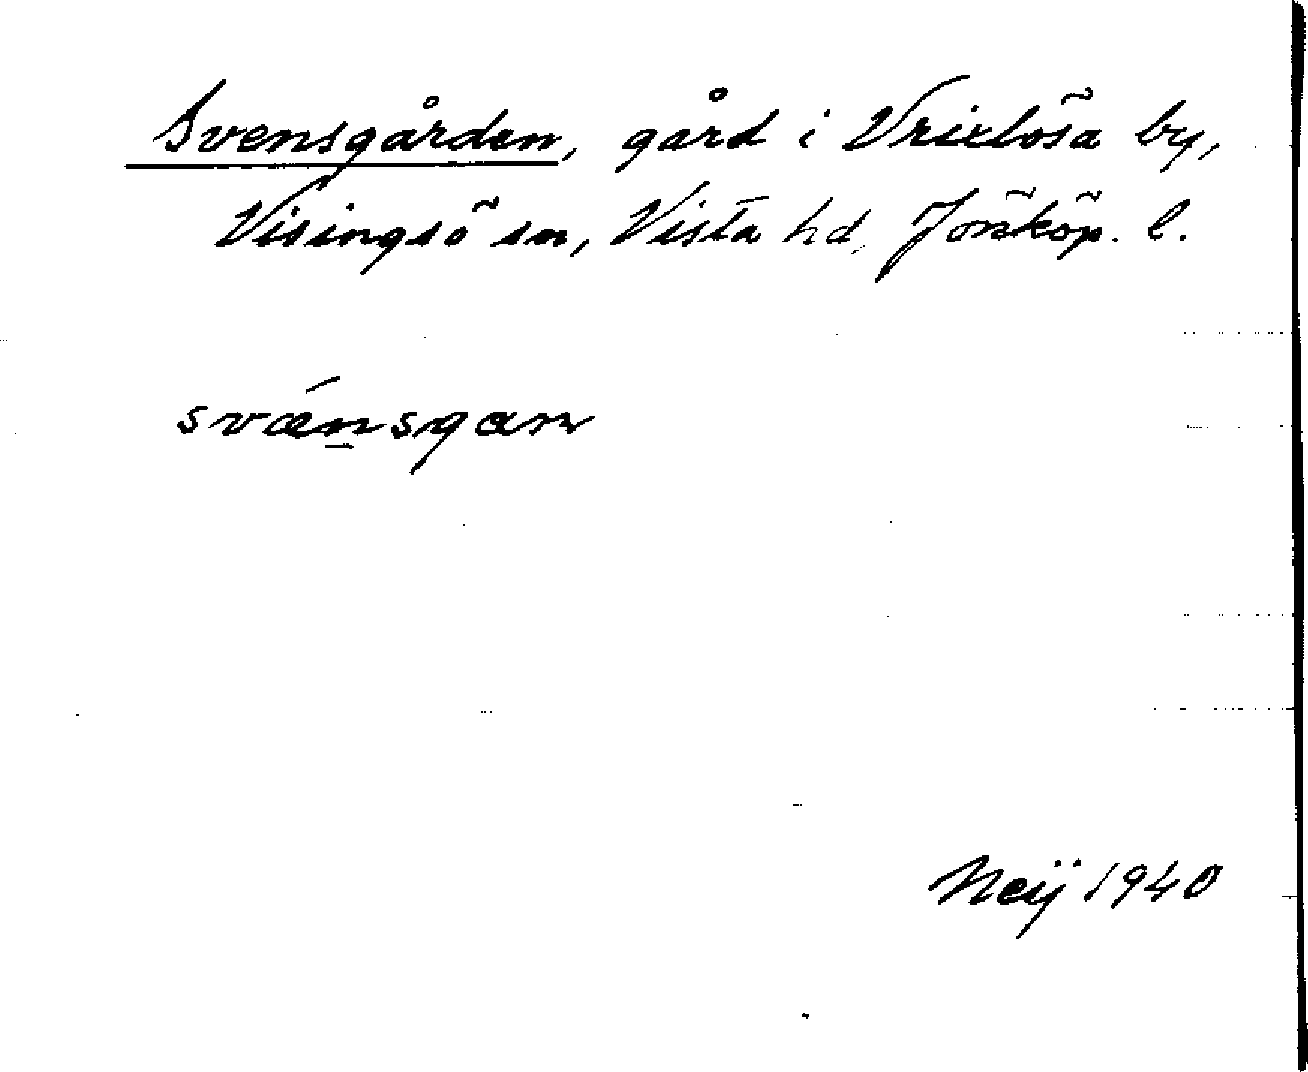 Svensgården, gård i Vrixlösa by,
Visingsö sn, Vista hd, Jönköp. l.
svǽn̲sgan
Neij 1940